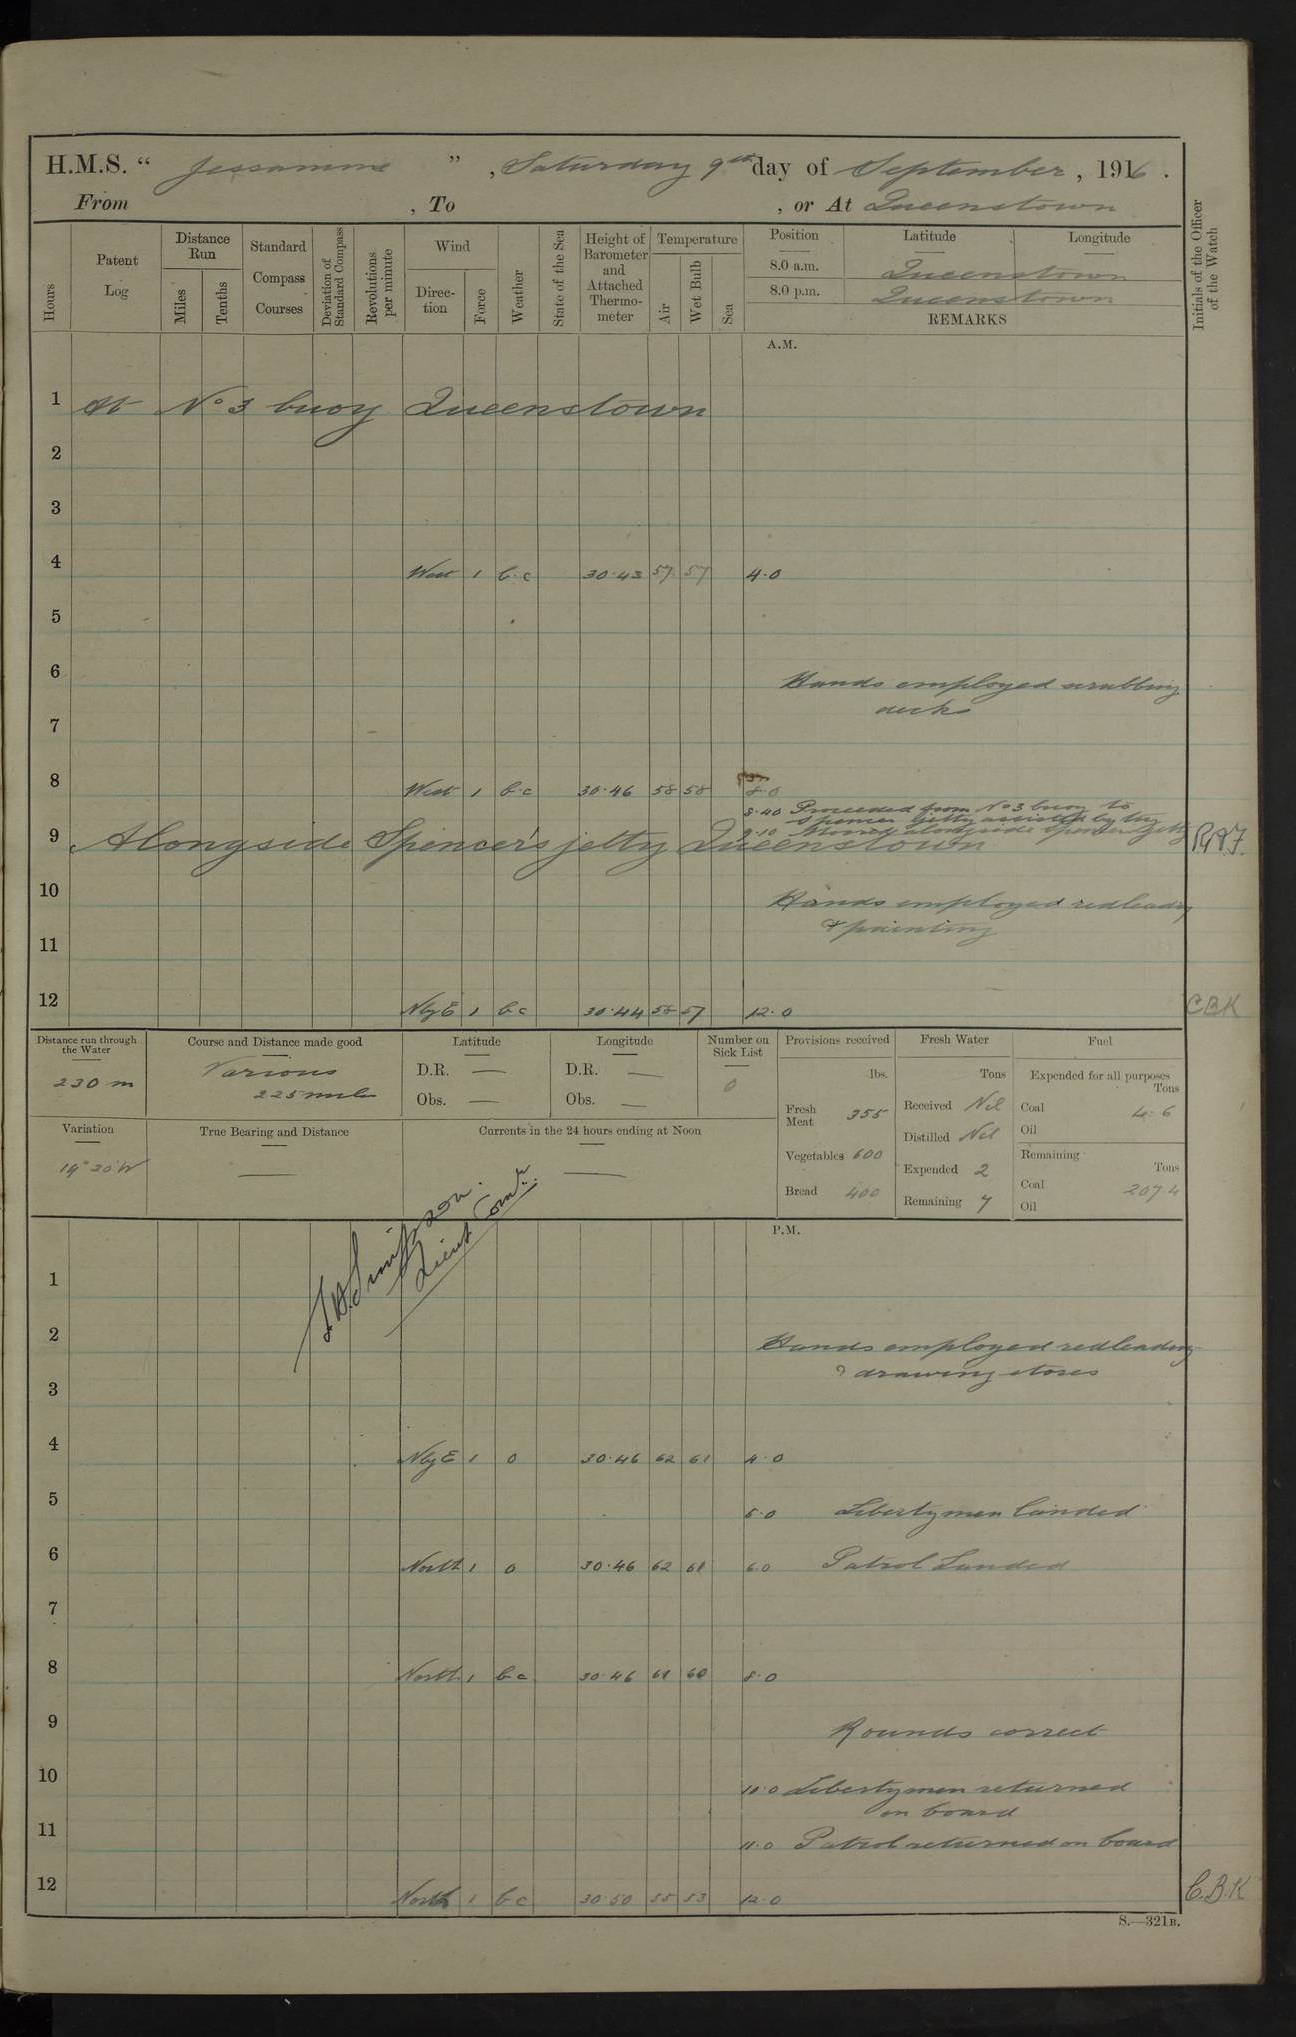 H.M.S. " Jessamine ", Saturday 9th day of September, 1916.
From , To , or At Queenstown
Hours
Patent Log
Distance Run
Miles
Tenths
Standard Compass Courses
Deviation of Standard Compass
Revolutions per minute
Wind
Direc-tion
Force
Weather
State of the Sea
Height of Barometer and Attached Thermo-meter
Temperature
Air
Wet Bulb
Sea
Position Latitude Longitude
8.0 a.m. Queenstown
8.0 p.m. Queenstown
REMARKS
Initials of the Officer of the Watch
A.M.
1 At No 3 buoy Queenstown
2
3
4 West 1 b.c 30.43 57 57 4.0
5
6 Hands employed scrubbing
decks
7
8 West 1 b.c 30.46 58 58 8.0
8.40 Proceeded from No 3 buoy to
Spencer jetty assisted by tug
9.10 Moored alongside Spencer jetty
9 Alongside Spencer's jetty Queenstown
10 Hands employed redleading
& painting
11
12 NbyE 1 bc 30.44 58 57 12.0 CBK
Distance run through the Water
230 m
Course and Distance made good
Various
225 miles
Latitude
D.R. —
Obs. —
Longitude
D.R. —
Obs. —
Number on Sick List
0
Provisions received
lbs.
Fresh Meat 355
Vegetables 600
Bread 400
Fresh Water
Tons
Received Nil
Distilled Nil
Expended 2
Remaining 7
Fuel
Expended for all purposes
Tons
Coal 4.6
Oil
Remaining
Tons
Coal 207.4
Oil
Variation
19° 20' W
True Bearing and Distance
—
Currents in the 24 hours ending at Noon
—
Simpson.
Lieut Comdr.
P.M.
1
2 Hands employed redleading
& drawing stores
3
4 NbyE 1 o 30.46 62 61 4.0
5 5.0 Libertymen landed
6 North 1 o 30.46 62 61 6.0 Patrol Landed
7
8 North 1 bc 30.46 61 60 8.0
9 Rounds correct
10 10.0 Libertymen returned
on board
11 11.0 Patrol returned on board
12 North 1 bc 30.50 55 53 12.0 C.B.K
S.—321B.